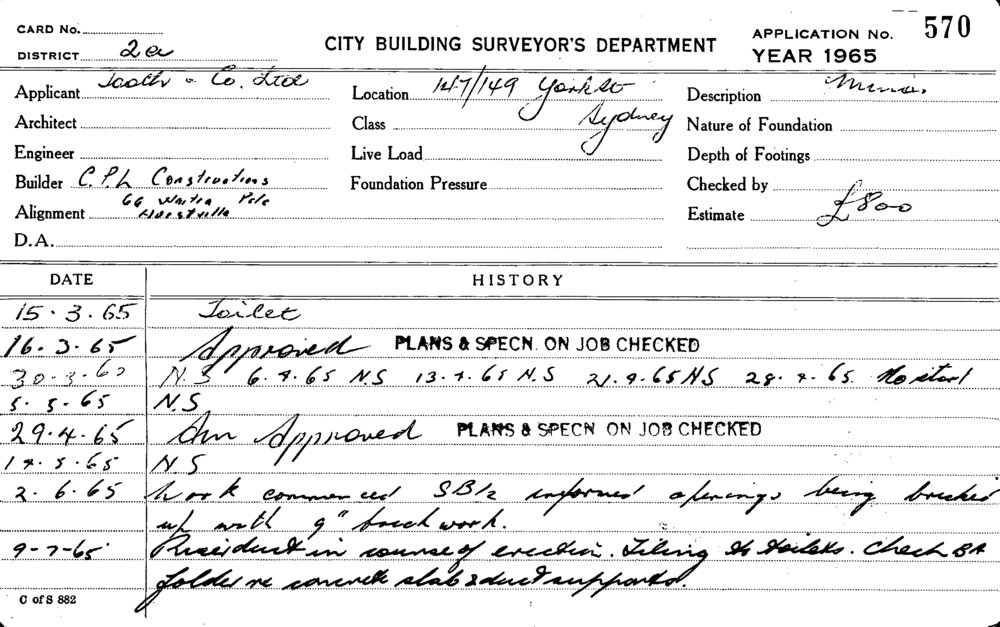 CARD No.
DISTRICT 2a
CITY BUILDING SURVEYOR'S DEPARTMENT
APPLICATION No. 570
YEAR 1965
Applicant Tooth & Co. Ltd
Location 147/149 York St
Sydney
Description Minor
Architect
Class
Nature of Foundation
Engineer
Live Load
Depth of Footings
Builder C.P.L Constructions
66 Pde
Hurstville
Foundation Pressure
Checked by
Alignment
Estimate £800
D.A.
DATE HISTORY
15.3.65 Toilet
16.3.65 Approved PLANS & SPECN. ON JOB CHECKED
30.3.65 N.S 6.4.65 N.S 13.4.65 N.S 21.4.65 N.S 28.4.65. No start
5.5.65 N.S
29.4.65 Am Approved PLANS & SPECN ON JOB CHECKED
14.5.65 N.S
2.6.65 Work commenced informed openings being bricked
up with 9" brickwork.
9-7-65 duct in course of erection. Tiling to toilets. Check BA
folder re concrete slab & duct supports.
C of S 882